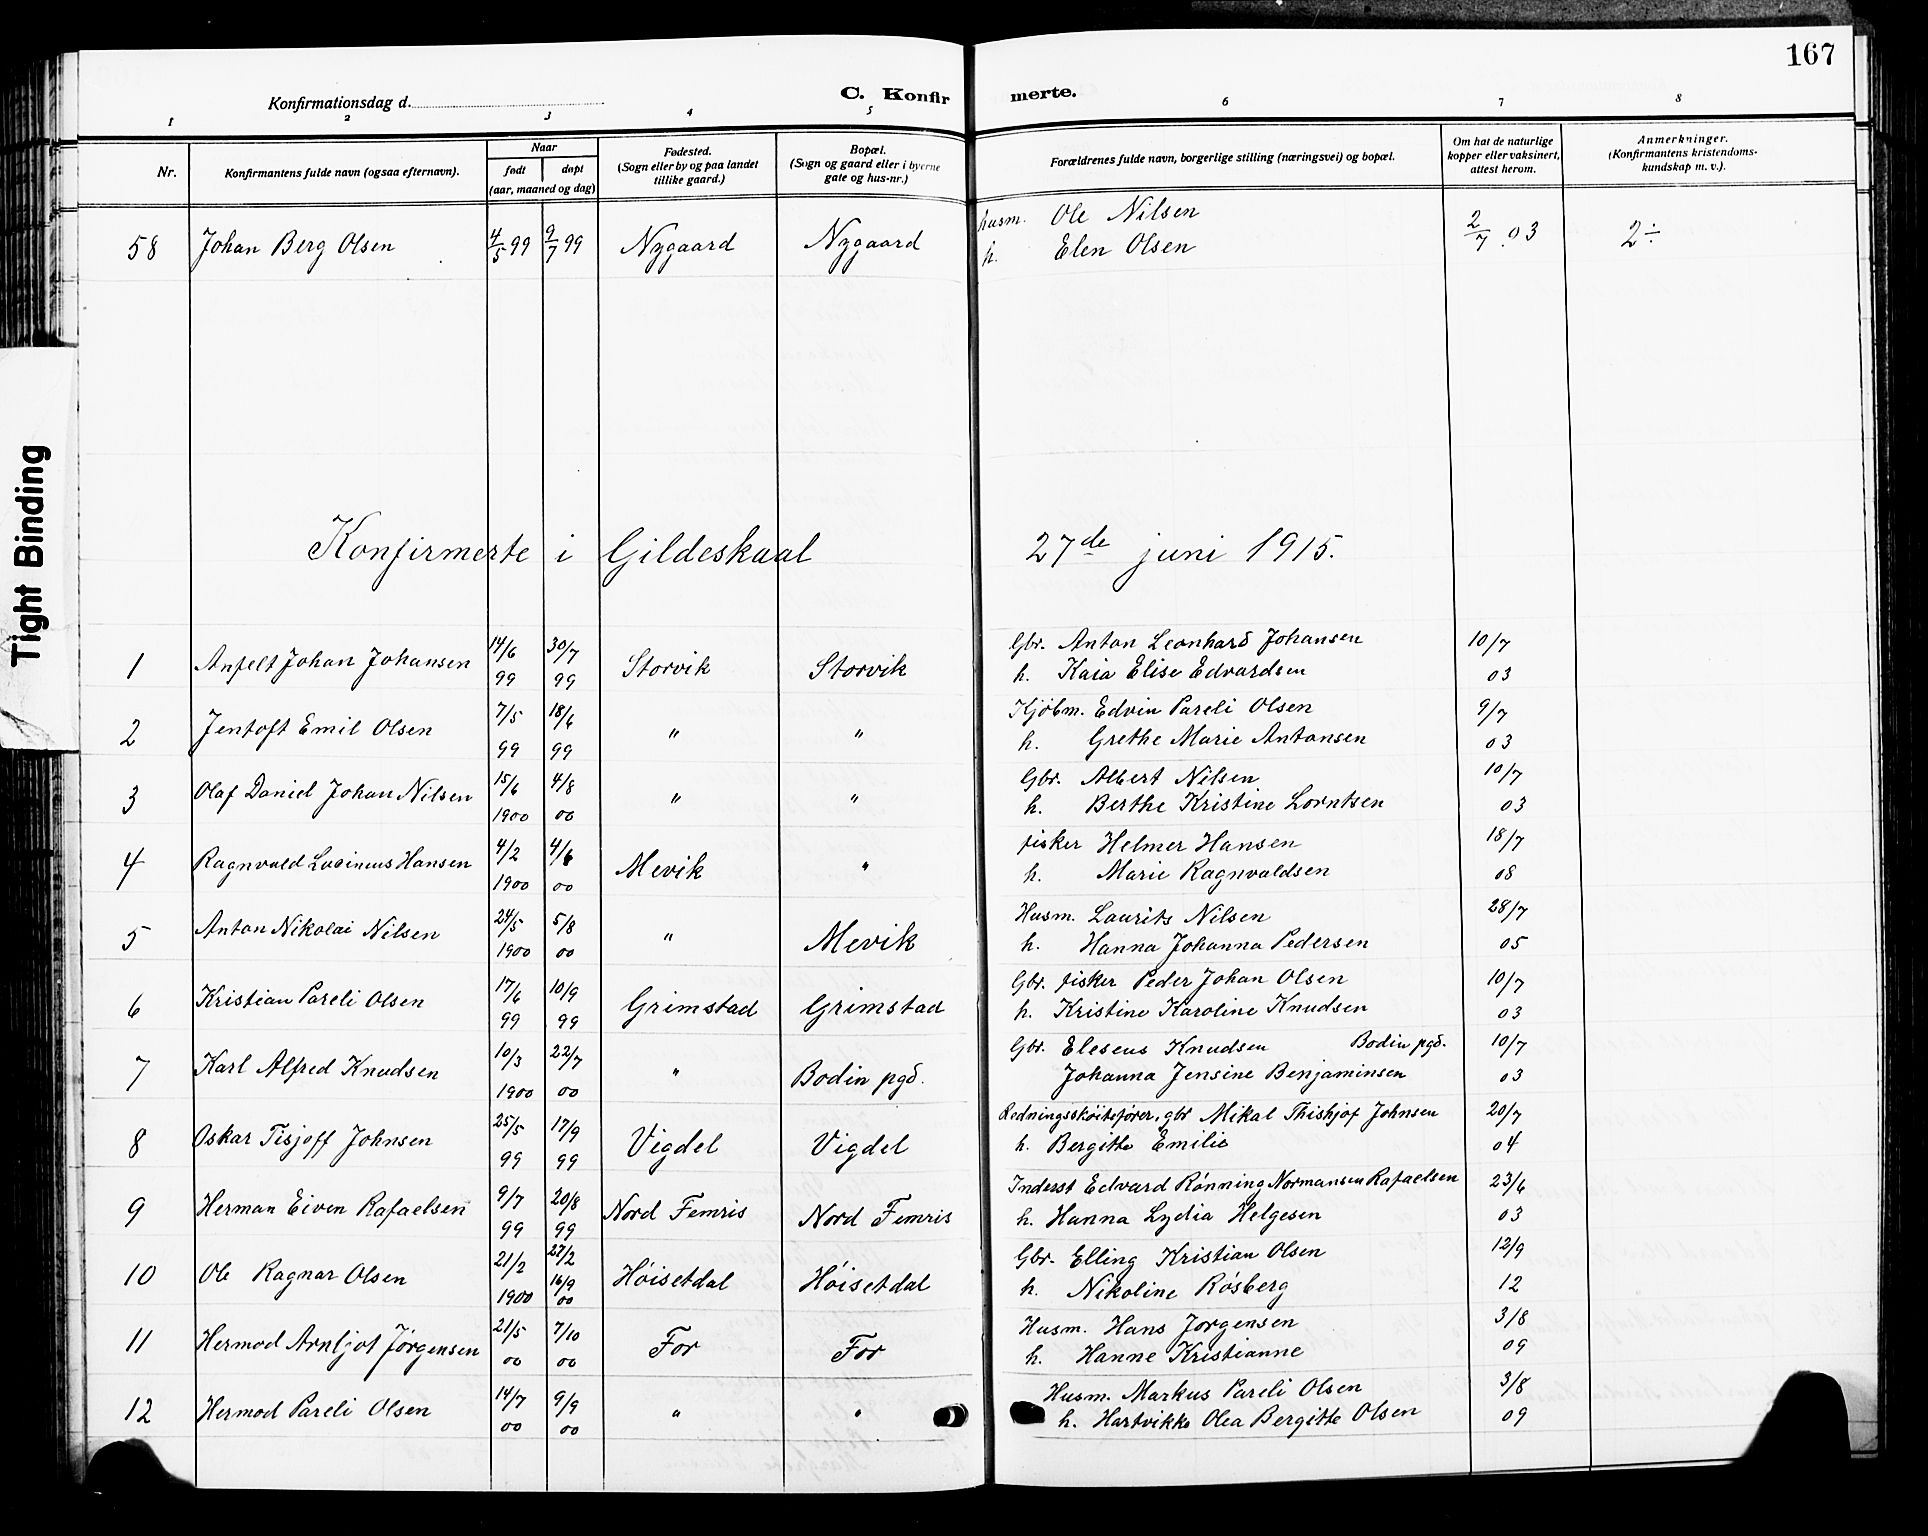 167
Konfirmationsdag d.
C. Konfirmerte.
1 2 3 4 5 6 7 8
Nr.
Konfirmantens fulde navn (ogsaa efternavn).
Naar
født døpt
(aar, maaned og dag)
Fødested.
(Sogn eller by og paa landet
tillike gaard.)
Bopæl.
(Sogn og gaard eller i byerne
gate og hus-nr.)
Forældrenes fulde navn, borgerlige stilling (næringsvei) og bopæl.
Om hat de naturlige
kopper eller vaksinert,
attest herom.
Anmerkninger.
(Konfirmantens kristendoms-
kundskap m. v.).
58 Johan Berg Olsen 4/5 99 9/7 99 Nygaard Nygaard husm. Ole Nilsen 2/7 03 2÷
h. Elen Olsen
Konfirmerte i Gildeskaal 27de juni 1915.
1 Anfelt Johan Johansen 14/6 99 30/7 99 Storvik Storvik Gbr. Anton Leonhard Johansen 10/7
h. Kaia Elise Edvardsen 03
2 Jentoft Emil Olsen 7/5 99 18/6 99 " " Kjøbm. Edvin Pareli Olsen 9/7
h. Grethe Marie Antonsen 03
3 Olaf Daniel Johan Nilsen 15/6 1900 4/8 00 " " Gbr. Albert Nilsen 10/7
h. Berthe Kristine Lorntsen 03
4 Ragnvald Lucineus Hansen 4/2 1900 4/6 00 Mevik " fisker Helmer Hansen 18/7
h. Marie Ragnvaldsen 08
5 Anton Nikolai Nilsen 24/5 1900 5/8 00 " Mevik Husm. Laurits Nilsen 28/7
h. Hanna Johanna Pedersen 05
6 Kristian Pareli Olsen 17/6 99 10/9 99 Grimstad Grimstad Gbr. fisker Peder Johan Olsen 10/7
h. Kristine Karoline Knudsen 03
7 Karl Alfred Knudsen 10/3 1900 22/7 00 " Bodin pgd. Gbr. Eleseus Knudsen Bodin pgd. 10/7
Johanna Jensine Benjaminsen 03
8 Oskar Tisjoff Johnsen 25/5 99 17/9 99 Vigdel Vigdel Redningsskøitefører, gbr Mikal Thishjof Johnsen 20/7
h. Bergitte Emilie 04
9 Herman Eiven Rafaelsen 9/7 99 20/8 99 Nord Femris Nord Femris Inderst Edvard Rønning Normansen Rafaelsen 23/6
h. Hanna Lydia Helgesen 03
10 Ole Ragnar Olsen 21/2 1900 27/2 16/9 00 Høisetdal Høisetdal Gbr. Elling Kristian Olsen 12/9
h. Nikoline Røsberg 12
11 Hermod Arntljot Jørgensen 21/5 00 7/10 00 For For Husm. Hans Jørgensen 3/8
h. Hanne Kristianne 09
12 Hermod Pareli Olsen 14/7 00 9/9 00 " " Husm. Markus Pareli Olsen 3/8
h. Hartvikke Olea Bergitte Olsen 09
Tight Binding